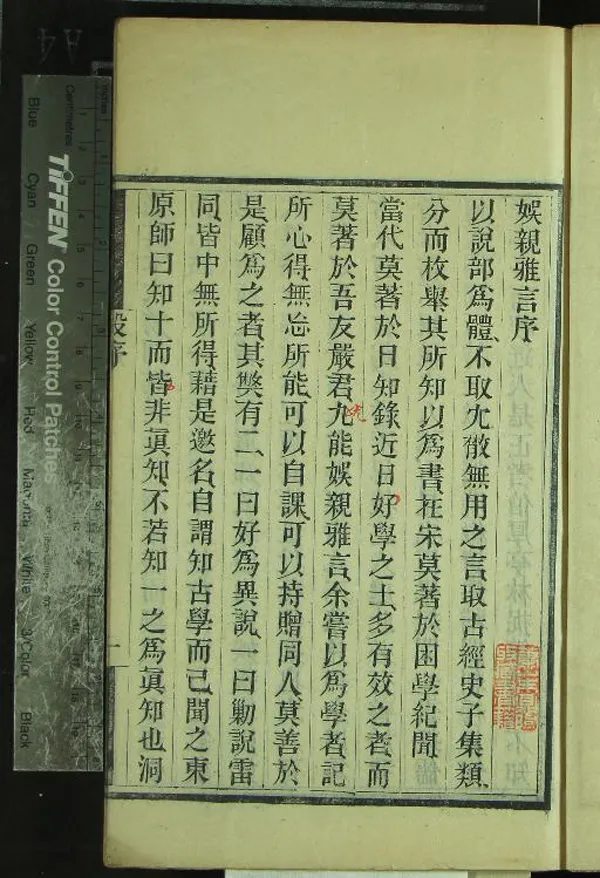 娛親雅言序
以說部爲體、不取尤㪚無用之言、取古經史子集類、
分而枚舉其所知以爲書、在宋莫著於困學紀聞、
當代莫著於日知錄、近日好學之士、多有效之者、而
莫著於吾友嚴君九能娛親雅言、余嘗以爲學者、記
所心得、無忘所能、可以自課、可以持贈同人、莫善於
是、顧爲之者、其獘有二、一曰好爲異說、一曰勦說雷
同、皆中無所得、藉是邀名、自謂知古學而已、聞之東
原師曰、知十而皆非眞知、不若知一之爲眞知也、洞
段序
一
Centimetres
Inches
TIFFEN Color Control Patches
Blue
Cyan
Green
Yellow
Red
Magenta
White
3/Color
Black
A4